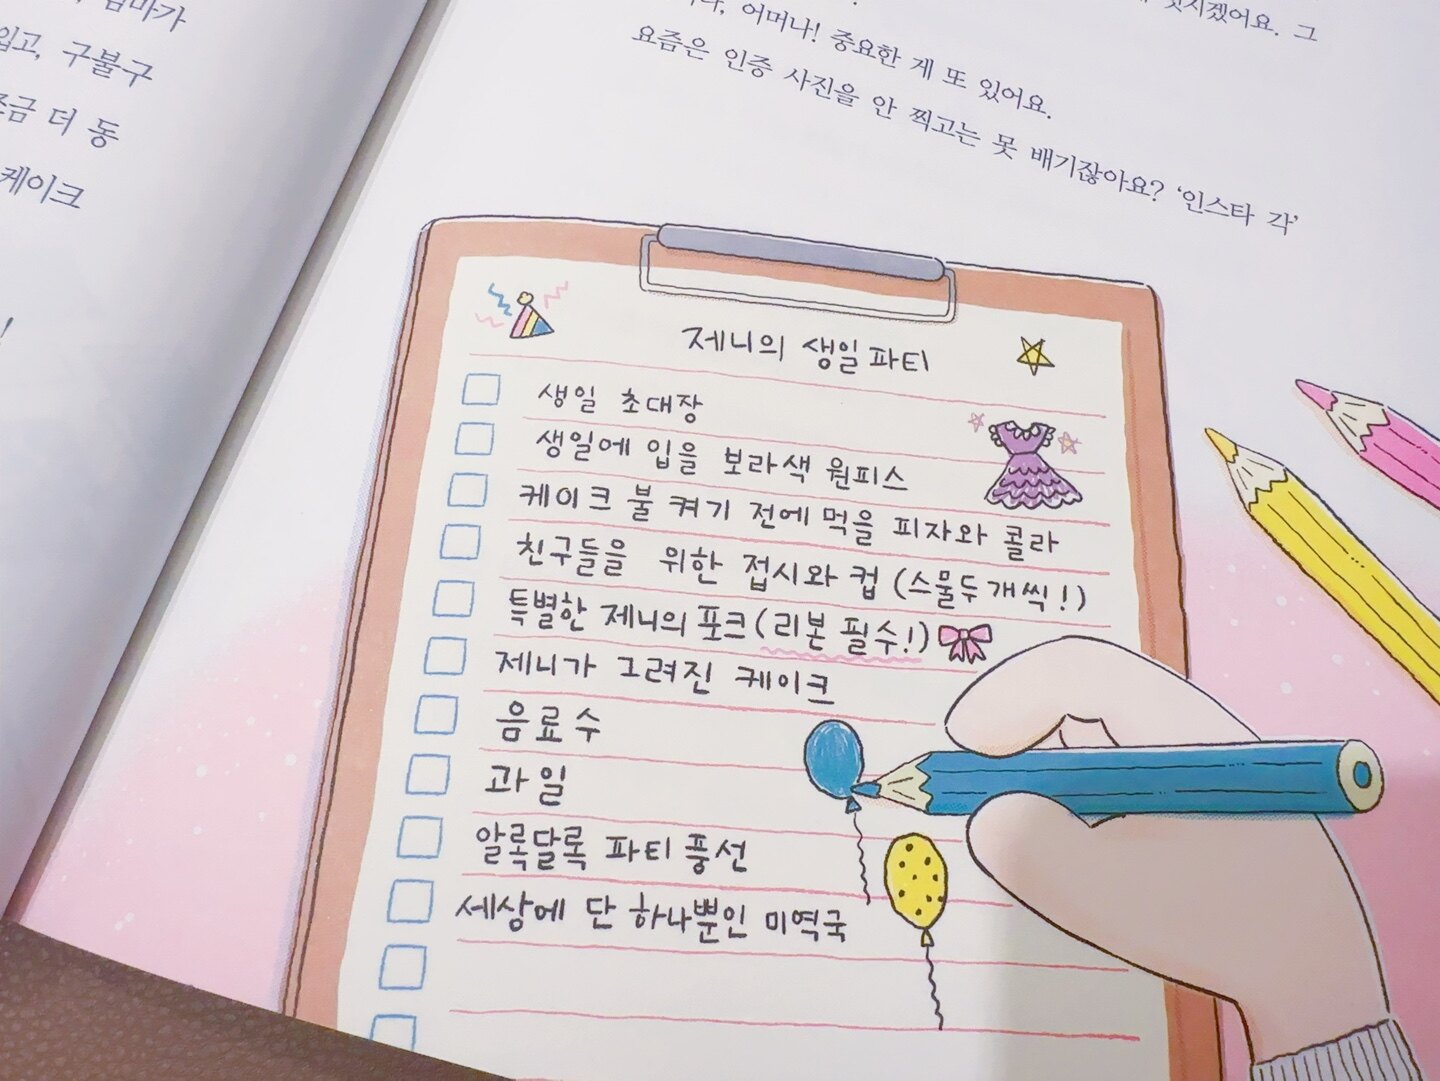 입고, 구불구
더 동
케이크
어머나! 중요한 게 또 있어요.
요즘은 인증 사진을 안 찍고는 못 배기잖아요? ‘인스타 각’
제니의 생일파티
생일 초대장
생일에 입을 보라색 원피스
케이크 불 켜기 전에 먹을 피자와 콜라
친구들을 위한 접시와 컵 (스물두 개씩!)
특별한 제니의 포크(리본 필수!)
제니가 그려진 케이크
음료수
과일
알록달록 파티 풍선
세상에 단 하나뿐인 미역국